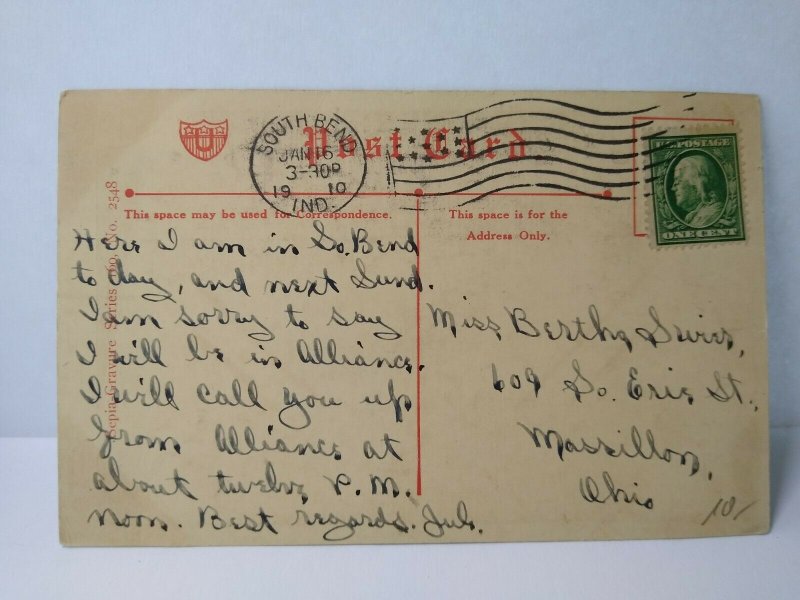 SOUTH BEND
JAN 16
3-30P
1910
IND.
Post Card
U.S. POSTAGE
ONE CENT
This space may be used for Correspondence.
This space is for the
Address Only.
Sepia Gravure Series No. 2548
Here I am in So. Bend
to day, and next Sund.
I am sorry to say
I will be in Alliance.
I will call you up
from Alliance at
about twelve P.M.
noon. Best regards. Jul.
Miss Bertha
609 So. Erie St.,
Massillon,
Ohio
10/